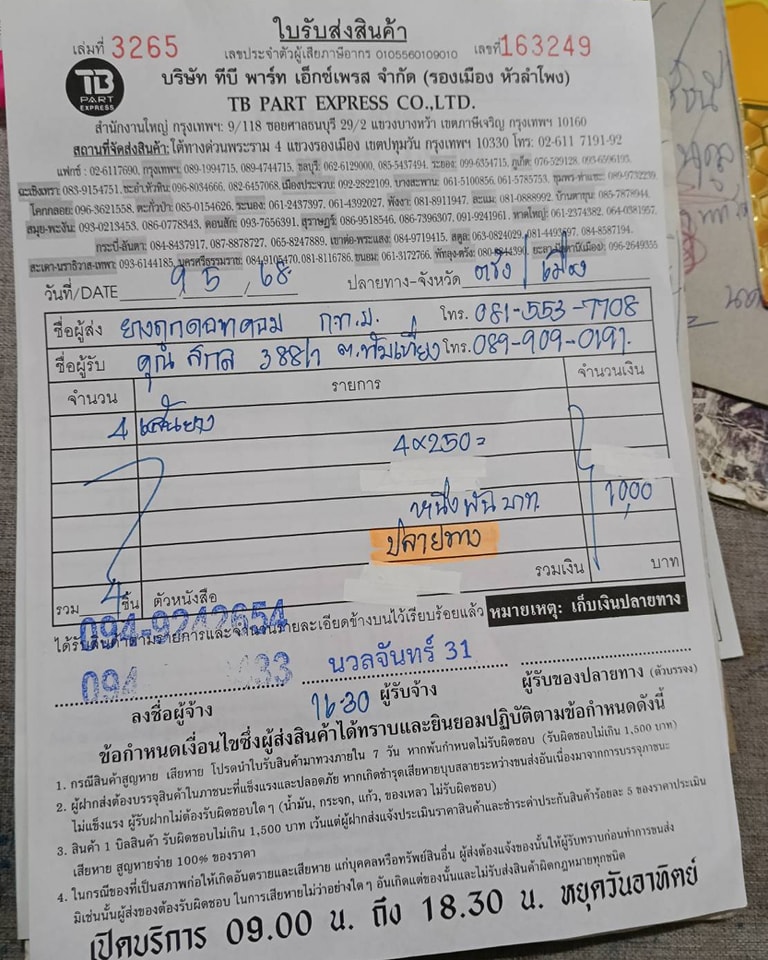 ใบรับส่งสินค้า
เล่มที่ 3265 เลขประจำตัวผู้เสียภาษีอากร 0105560109010 เลขที่ 163249
TB PART EXPRESS
บริษัท ทีบี พาร์ท เอ็กซ์เพรส จำกัด (รองเมือง หัวลำโพง)
TB PART EXPRESS CO.,LTD.
สำนักงานใหญ่ กรุงเทพฯ: 9/118 ซอยศาลธนบุรี 29/2 แขวงบางหว้า เขตภาษีเจริญ กรุงเทพฯ 10160
สถานที่จัดส่งสินค้า: ใต้ทางด่วนพระราม 4 แขวงรองเมือง เขตปทุมวัน กรุงเทพฯ 10330 โทร: 02-611 7191-92
แฟกซ์ : 02-6117690, กรุงเทพฯ: 089-1994715, 089-4744715, ชลบุรี: 062-6129000, 085-5437494, ระยอง: 099-6354715, ภูเก็ต: 076-529128, 093-6596193,
ฉะเชิงเทรา: 083-9154751, ชะอำ/หัวหิน: 096-8034666, 082-6457068, เมืองประจวบ: 092-2822109, บางสะพาน: 061-5100856, 061-5785753, ชุมพร-ท่าแซะ: 089-9732239,
โคกกลอย: 096-3621558, ตะกั่วป่า: 085-0154626, ระนอง: 061-2437397, 061-4392027, พังงา: 081-8911947, ละแม: 081-0888992, บ้านตาขุน: 085-7878944,
สมุย-พะงัน: 093-0213453, 086-0778343, ดอนสัก: 093-7656391, สุราษฎร์: 086-9518546, 086-7396307, 091-9241961, หาดใหญ่: 061-2374382, 064-0381957,
กระบี่-ลันตา: 084-8437917, 087-8878727, 065-8247889, เขาต่อ-พระแสง: 084-9719415, สตูล: 063-0824029, 081-4493597, 084-8587194,
สะเดา-นราธิวาส-เทพา: 093-6144185, นครศรีธรรมราช: 084-9105470, 081-8116786, ขนอม: 061-3172766, พัทลุง-ตรัง: 080-8844390, ยะลา-ปัตตานี(เมือง): 096-2649355
วันที่/DATE 9 5 68 ปลายทาง-จังหวัด ตรัง / เมือง
ชื่อผู้ส่ง ยางถูกดอทคอม ก.ท.ม. โทร. 081-553-7708
ชื่อผู้รับ คุณ สกล 388/1 ต.ทับเที่ยง โทร. 089-909-0191.
จำนวน รายการ จำนวนเงิน
4 เส้นยาง
4x250=
หนึ่งพันบาท. 1000
ปลายทาง
รวมเงิน บาท
รวม 4 ชิ้น ตัวหนังสือ
094-9242654
ได้รับสินค้าตามรายการและจำนวนรายละเอียดข้างบนไว้เรียบร้อยแล้ว หมายเหตุ: เก็บเงินปลายทาง
094 33 นวลจันทร์ 31
ลงชื่อผู้จ้าง 16:30 ผู้รับจ้าง ผู้รับของปลายทาง (ตัวบรรจง)
ข้อกำหนดเงื่อนไขซึ่งผู้ส่งสินค้าได้ทราบและยินยอมปฏิบัติตามข้อกำหนดดังนี้
1. กรณีสินค้าสูญหาย เสียหาย โปรดนำใบรับสินค้ามาทวงภายใน 7 วัน หากพ้นกำหนดไม่รับผิดชอบ (รับผิดชอบไม่เกิน 1,500 บาท)
2. ผู้ฝากส่งต้องบรรจุสินค้าในภาชนะที่แข็งแรงและปลอดภัย หากเกิดชำรุดเสียหายบุบสลายระหว่างขนส่งอันเนื่องมาจากการบรรจุภาชนะ
ไม่แข็งแรง ผู้รับฝากไม่ต้องรับผิดชอบใดๆ (น้ำมัน, กระจก, แก้ว, ของเหลว ไม่รับผิดชอบ)
3. สินค้า 1 บิลสินค้า รับผิดชอบไม่เกิน 1,500 บาท เว้นแต่ผู้ฝากส่งแจ้งประเมินราคาสินค้าและชำระค่าประกันสินค้าร้อยละ 5 ของราคาประเมิน
เสียหาย สูญหายจ่าย 100% ของราคา
4. ในกรณีของที่เป็นสภาพก่อให้เกิดอันตรายและเสียหาย แก่บุคคลหรือทรัพย์สินอื่น ผู้ส่งต้องแจ้งของนั้นให้ผู้รับทราบก่อนทำการขนส่ง
มิเช่นนั้นผู้ส่งของต้องรับผิดชอบ ในการเสียหายไม่ว่าอย่างใดๆ อันเกิดแต่ของนั้นและไม่รับส่งสินค้าผิดกฎหมายทุกชนิด
เปิดบริการ 09.00 น. ถึง 18.30 น. หยุดวันอาทิตย์